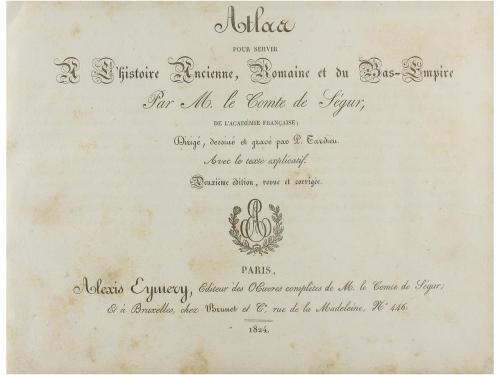 Atlas
POUR SERVIR
A L'histoire Ancienne, Romaine et du Bas-Empire
Par M. le Comte de Ségur,
DE L'ACADÉMIE FRANÇAISE;
Dirigé, dessiné et gravé par P. Tardieu.
Avec le texte explicatif.
Deuxième édition, revue et corrigée.
AE
PARIS,
Alexis Eymery, Editeur des Œuvres complètes de M. le Comte de Ségur;
Et à Bruxelles, chez Brunet et Cie, rue de la Madeleine, No 446.
1824.